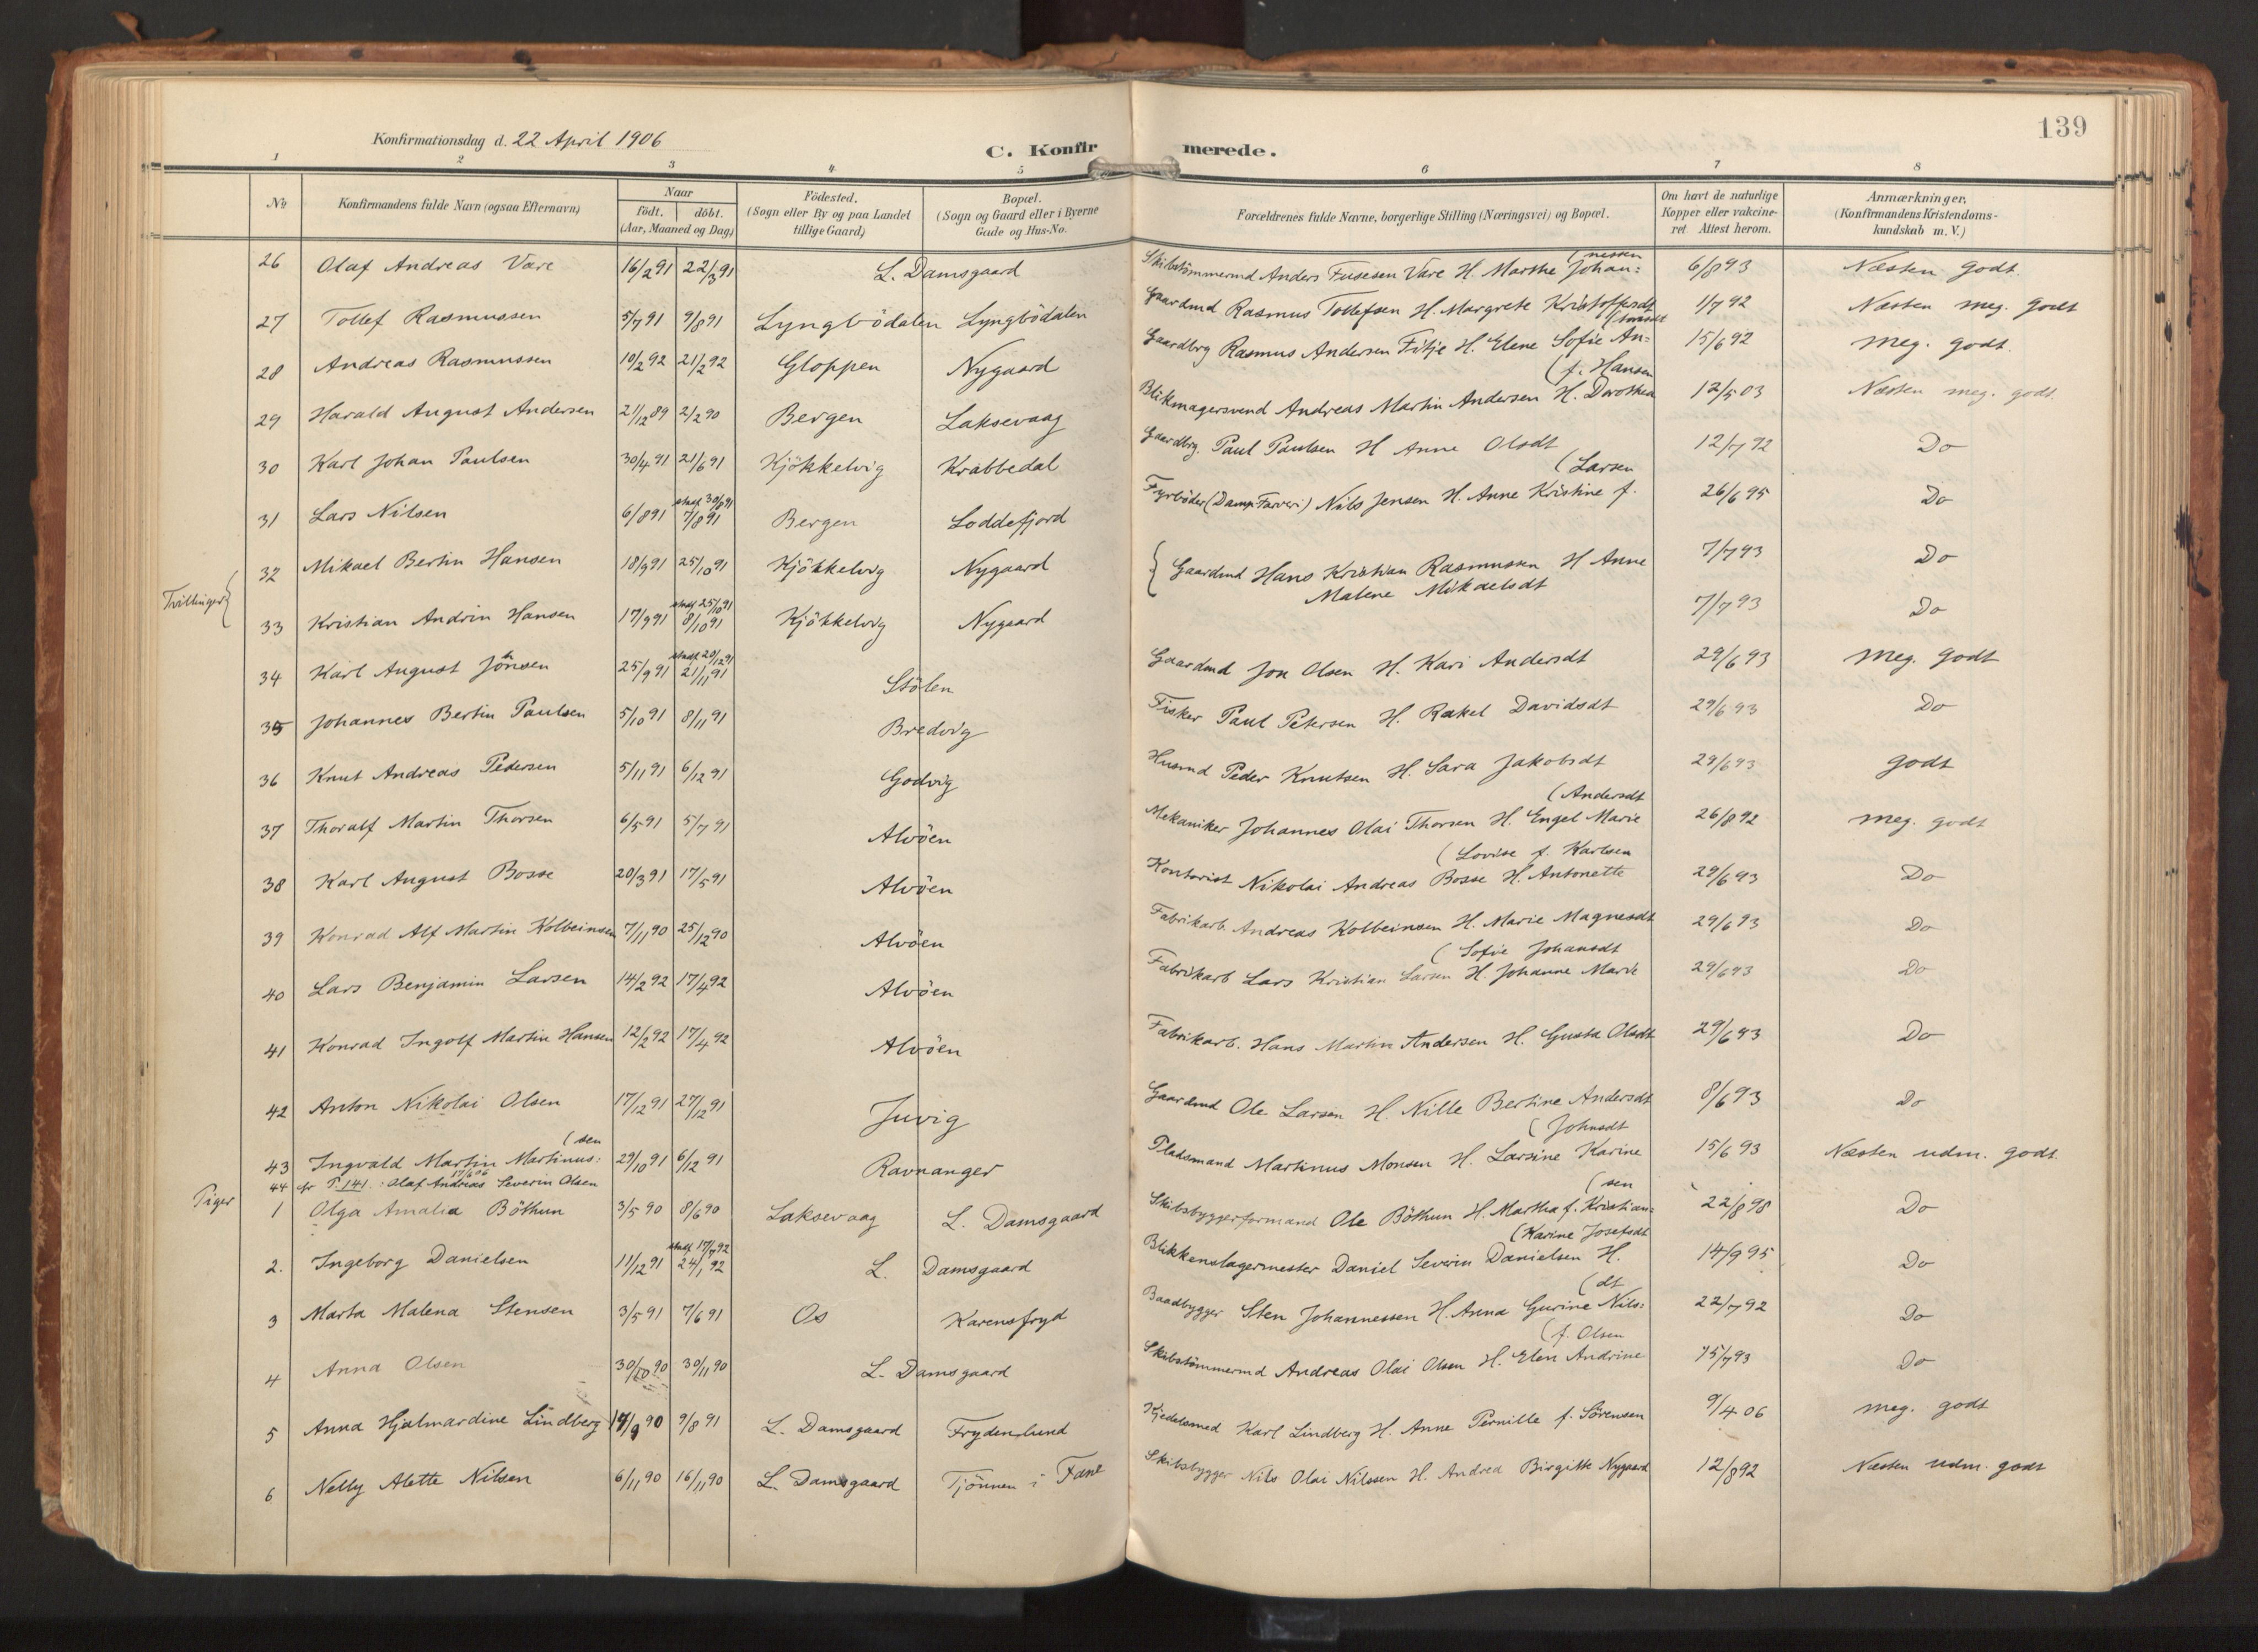 139
Konfirmationsdag d. 22 April 1906
C. Konfir merede.
1 2 3 4 5 6 7 8
No Konfirmandens fulde Navn (ogsaa Efternavn) Naar födt. döbt. (Aar, Maaned og Dag) Födested. (Sogn eller By og paa Landet tillige Gaard) Bopæl. (Sogn og Gaard eller i Byerne Gade og Hus-No. Forældrenes fulde Navne, borgerlige Stilling (Næringsvei) og Bopæl. Om havt de naturlige Kopper eller vakcineret Attest herom. Anmærkninger, (Konfirmandens Kristendomskundskab m. V.)
26 Olaf Andreas Vare 16/2 91 22/3 91 L. Damsgaard Skibstömmermd Anders Fusesen Vare H. Marthe Johan= (nessen 6/8 93 Næsten godt.
27 Tollef Rasmussen 5/7 91 9/8 91 Lyngbödalen Lyngbödalen Gaardmd Rasmus Tollefsen H. Margrete Kristoffersdt 1/7 92 Næsten meg. godt
28 Andreas Rasmussen 10/2 92 21/2 92 Gloppen Nygaard Gaardbrg Rasmus Andersen Fitje H. Elene Sofie An= 15/6 92 meg. godt.
29 Harald August Andersen 21/12 89 2/2 90 Bergen Laksevaag Blikmagersvend Andreas Martin Andersen H. Dorothea (f. Hansen 12/5 03 Næsten meg. godt.
30 Karl Johan Paulsen 30/4 91 21/6 91 Kjökkelvig Krabbedal Gaardbrg. Paul Paulsen H Anne Olsdt 12/7 92 Do
31 Lars Nilsen 6/8 91 stadf 30/8 91 7/8 91 Bergen Loddefjord Fyrböder (Damp Farveri) Nils Jensen H. Anne Kristine f. (Larsen 26/6 95 Do
Tvillinger {
32 Mikael Bertin Hansen 18/9 91 25/10 91 Kjökkelvig Nygaard { Gaardmd Hans Kristian Rasmussen H Anne Malene Mikaelsdt 7/7 93 Do
33 Kristian Andrin Hansen 17/9 91 stadf 25/10 91 8/10 91 Kjökkelvig Nygaard 7/7 93 Do
34 Karl August Jonsen 25/9 91 stadf 20/12 91 21/11 91 Stölen Gaardmd Jon Olsen H. Kari Andersdt 29/6 93 meg. godt
35 Johannes Bertin Paulsen 5/10 91 8/11 91 Bredvig Fisker Paul Petersen H. Rakel Davidsdt 29/6 93 Do
36 Knut Andreas Pedersen 5/11 91 6/12 91 Godvig Husmd Peder Knutsen H. Sara Jakobsdt 29/6 93 godt
37 Thoralf Martin Thorsen 6/5 91 5/7 91 Alvöen Mekaniker Johannes Olai Thorsen H. Engel Marie (Andersdt 26/8 92 meg. godt
38 Karl August Bosse 20/3 91 17/5 91 Alvöen Kontorist Nikolai Andreas Bosse H. Antonette (Lovise f. Karlsen 29/6 93 Do
39 Konrad Alf Martin Kolbeinsen 7/11 90 25/12 90 Alvöen Fabrikarb. Andreas Kolbeinsen H. Marie Magnesdt 29/6 93 Do
40 Lars Benjamin Larsen 14/2 92 17/4 92 Alvöen Fabrikarb Lars Kristian Larsen H. Johanne Marie (Sofie Johansdt 29/6 93 Do
41 Konrad Ingolf Martin Hansen 12/2 92 17/4 92 Alvöen Fabrikarb. Hans Martin Andersen H. Gusta Olsdt 29/6 93 Do
42 Anton Nikolai Olsen 17/12 91 27/12 91 Juvig Gaardmd Ole Larsen H. Nille Bertine Andersdt 8/6 93 Do
43 Ingvald Martin Martinus= (sen 29/10 91 6/12 91 Ravnanger Pladsmand Martinus Monsen H. Larsine Karine (Johnsdt 15/6 93 Næsten udm. godt.
44 cfr P. 141 17/6 06: Olaf Andreas Severin Olsen
Piger
1 Olga Amalia Böthun 3/5 90 8/6 90 Laksevaag L. Damsgaard Skibsbyggerformand Ole Böthun H. Martha f. Kristian= (sen 22/8 98 Do
2. Ingeborg Danielsen 11/12 91 stadf 17/7 92 24/1 92 L. Damsgaard Blikkenslagermester Daniel Severin Danielsen H. (Karine Josefsdt 14/9 95 Do
3 Marta Malena Stensen 3/5 91 7/6 91 Os Karensfryd Baadbygger Sten Johannessen H. Anna Gurine Nils= (dt 22/7 92 Do
4 Anna Olsen 30/10 90 30/11 90 L. Damsgaard Skibstömmermd Andreas Olai Olsen H. Elen Andrine (f. Olsen 15/7 93 Do
5 Anna Hjalmardine Lindberg 17/9 90 9/8 91 L. Damsgaard Frydenlund Kjedelsmed Karl Lindberg H. Anne Pernille f. Sörensen 9/4 06 meg. godt
6 Nelly Alette Nilsen 6/11 90 16/11 90 L. Damsgaard Tjönnen i Fane Skibsbygger Nils Olai Nilssen H. Andrea Birgitte Nygaard 12/8 92 Næsten udm. godt